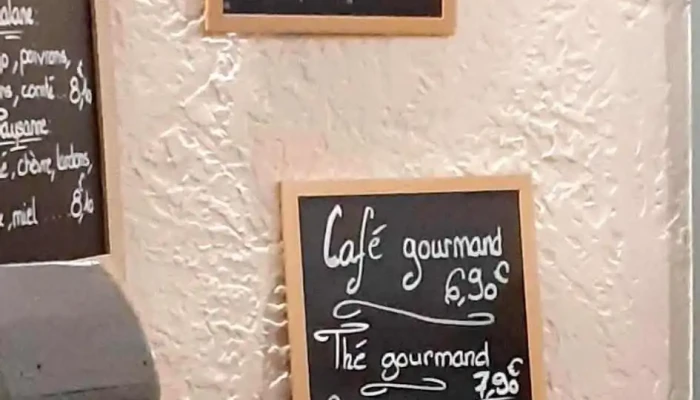 poivrons,
comté 8,10
Paysanne:
chèvre, lardons,
miel 8,10
Café gourmand
6,90€
Thé gourmand
7,90€